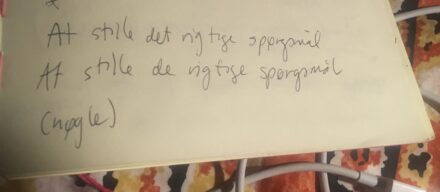 At stille det rigtige spørgsmål
At stille de rigtige spørgsmål
(nøgle)